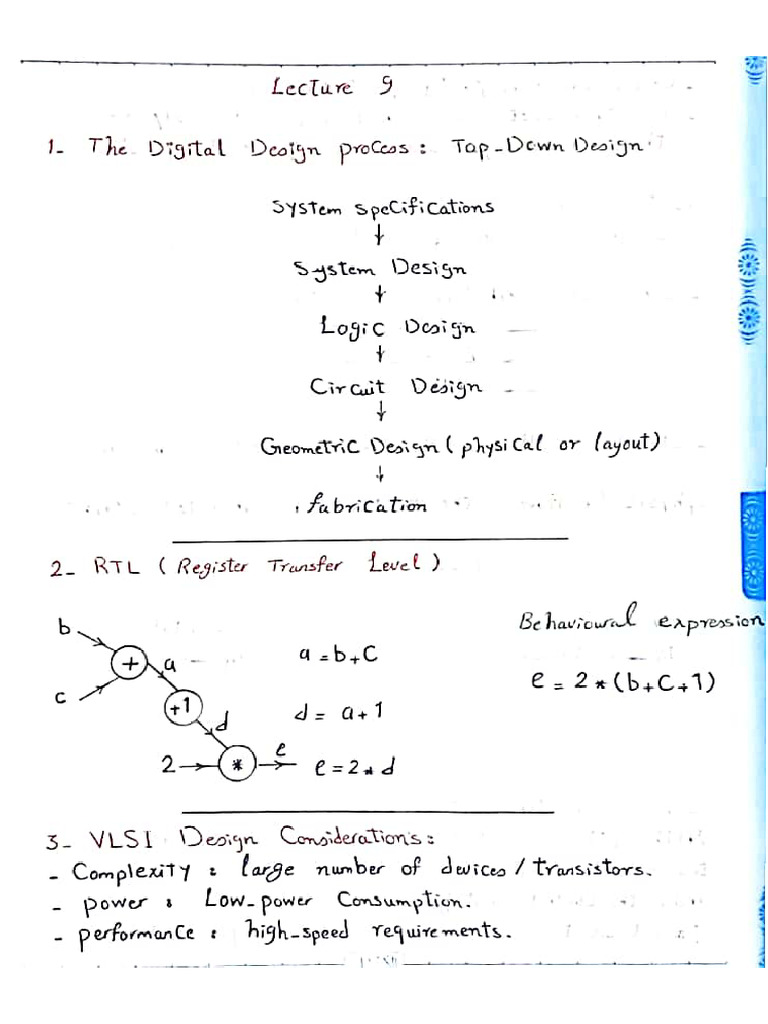 Lecture 9
1- The Digital Design process: Top-Down Design
System specifications
↓
System Design
↓
Logic Design
↓
Circuit Design
↓
Geometric Design (physical or layout)
↓
fabrication
2- RTL (Register Transfer Level)
Behavioural expression
b
+ a
a = b+C
e = 2*(b+C+1)
c
+1 d
d = a+1
2 * e
e = 2*d
3- VLSI Design Considerations:
- Complexity: large number of devices / transistors.
- power: Low-power Consumption.
- performance: high-speed requirements.